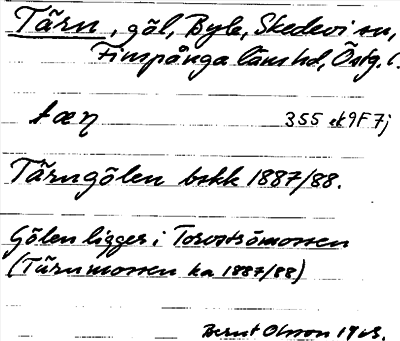 Tärn, göl, Byle, Skedevi sn,
Finspånga läns hd, Östg. l.
tæɳ 355 ek 9F 7j
Tärngölen bskk 1887/88.
Gölen ligger i Torvströmossen
(Tärnmossen ka 1887/88)
Bernt Olsson 1968.